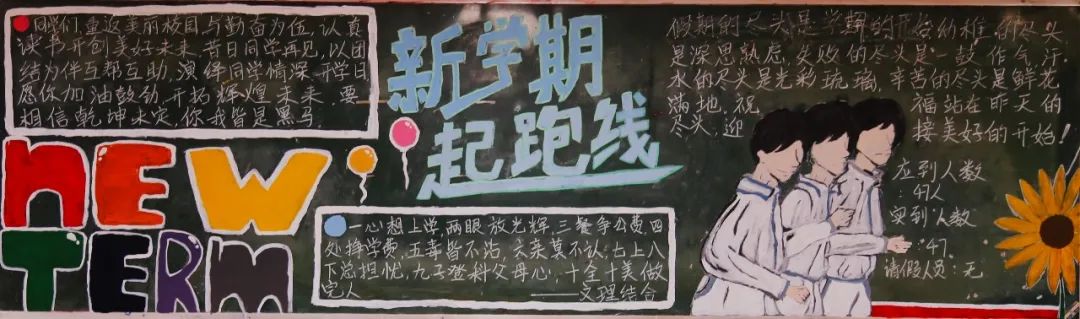 同学们,重返美丽校园与勤奋为伍,认真
读书开创美好未来,昔日同学再见,以团
结为伴互帮互助,演绎同学情深,开学日
愿你加油鼓劲,开拓辉煌未来,要
相信乾坤未定,你我皆是黑马.
NEW
TERM
新学期
起跑线
一心想上学,两眼放光辉,三餐争公费,四
处挣学费,五毒皆不沾,六亲莫不认,七上八
下总担忧,九子登科父母心,十全十美做
完人
——文理结合
假期的尽头是学期的开始,幼稚的尽头
是深思熟虑,失败的尽头是一鼓作气,汗
水的尽头是光彩琉璃,辛苦的尽头是鲜花
满地,祝 福站在昨天的
尽头,迎 接美好的开始!
应到人数
:47人
实到人数
:47
请假人员:无